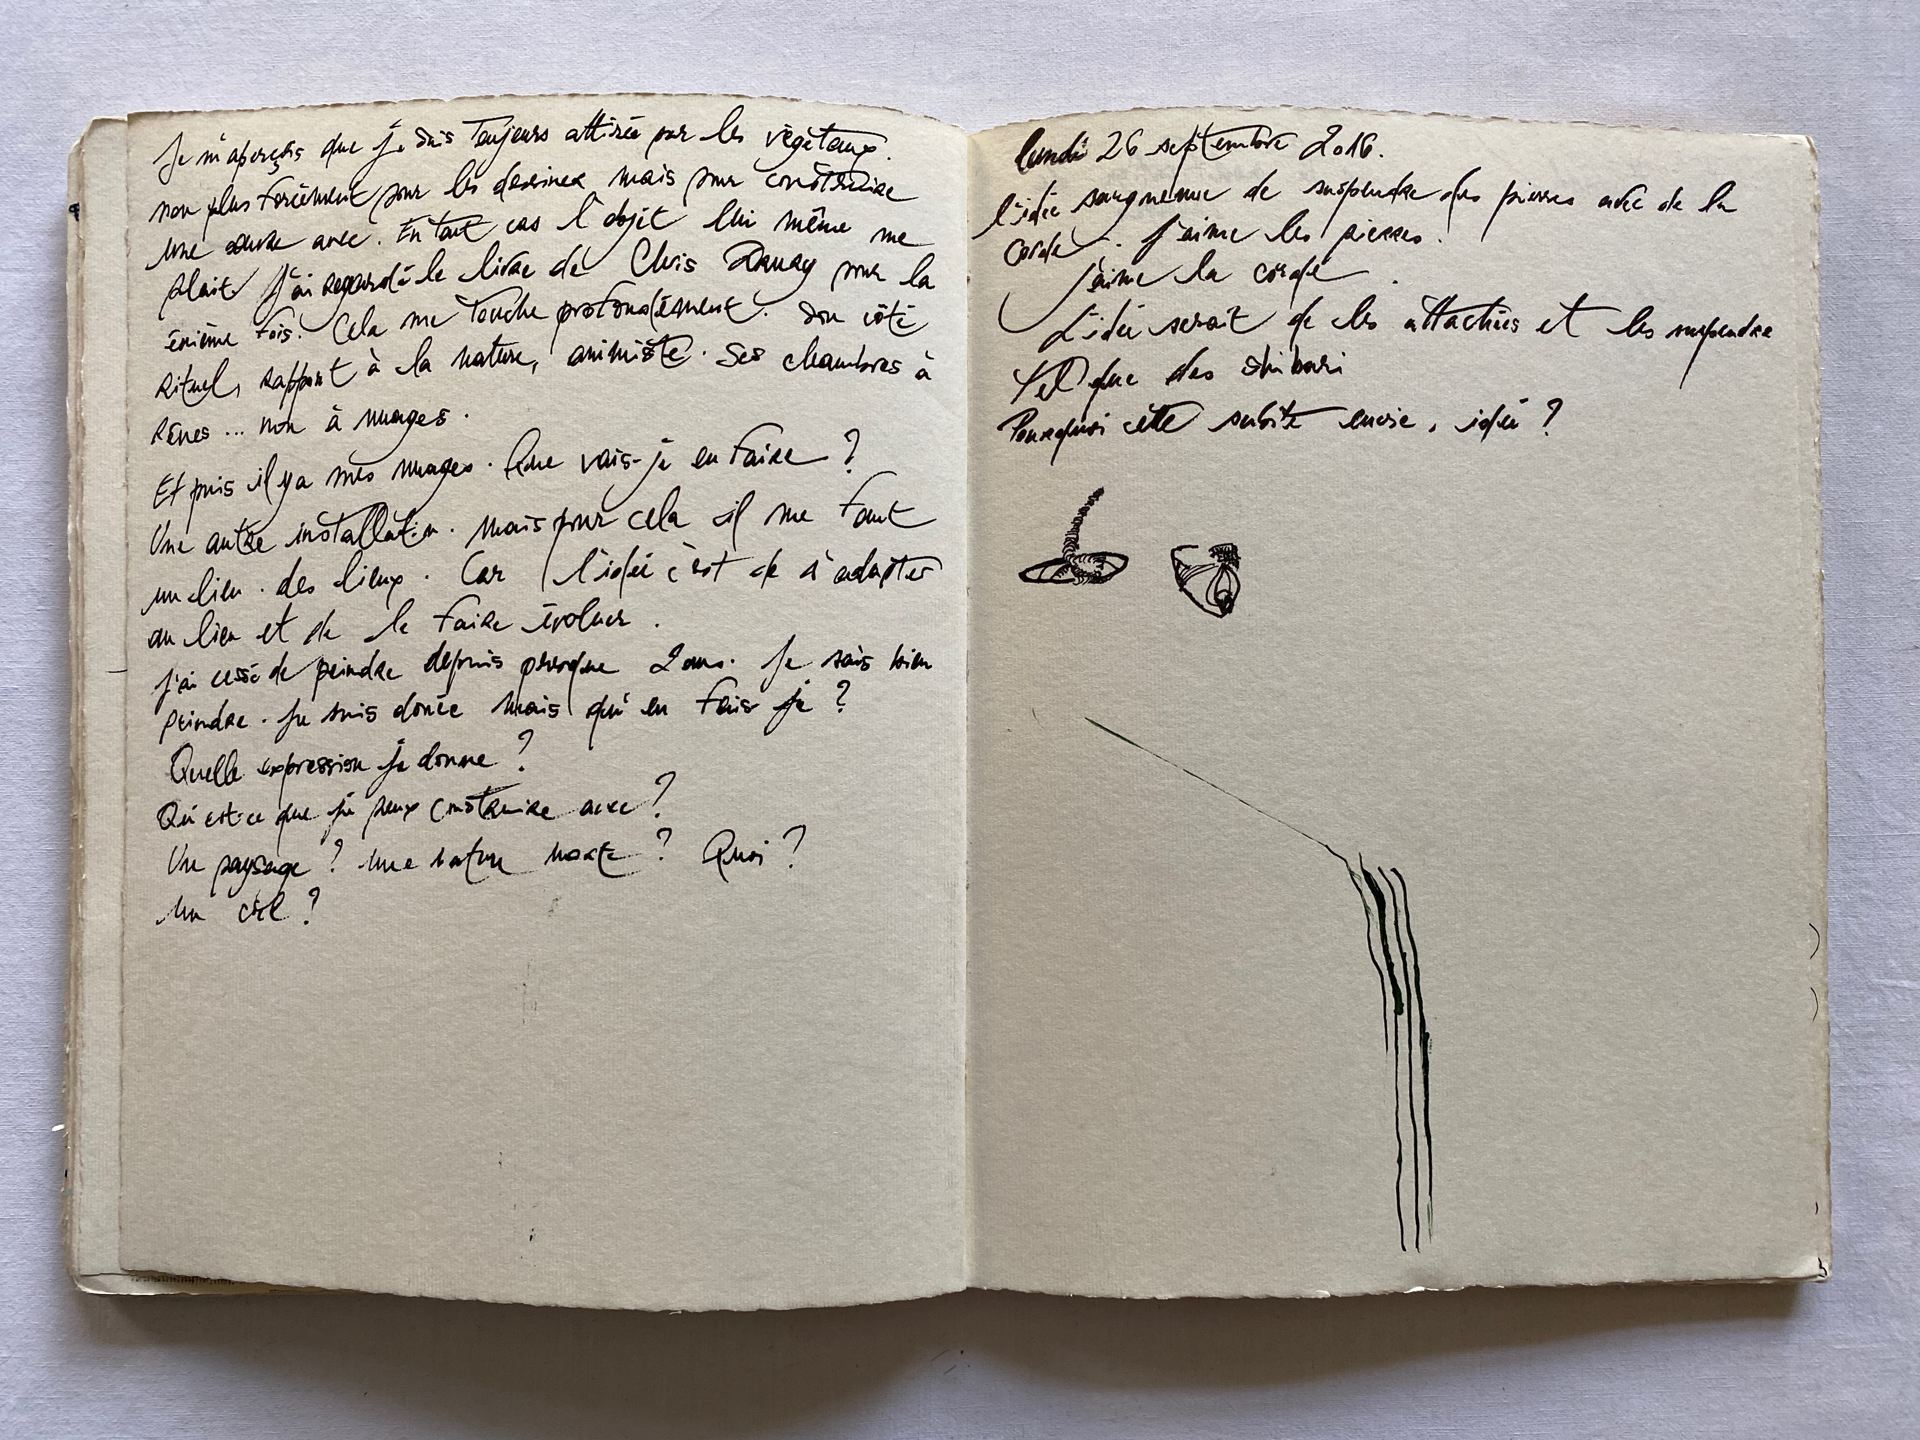 Je m'aperçois que je suis toujours attirée par les végétaux.
non plus forcément pour les dessiner mais pour construire
une œuvre avec. En tout cas l'objet lui même me
plait. J'ai regardé le livre de Chris Drury pour la
énième fois. Cela me touche profondément. Son côté
rituel, rapport à la nature, animiste. Ses chambres à
rêves ... non à nuages.
Et puis il y a mes nuages. Que vais-je en faire ?
Une autre installation. Mais pour cela il me faut
un lieu. des lieux. Car l'idée c'est de s'adapter
au lieu et de le faire évoluer.
J'ai cessé de peindre depuis presque 2 ans. Je sais bien
peindre. Je suis douée mais qu'en fais je ?
Quelle expression je donne ?
Qu'est-ce que je peux construire avec ?
Un paysage ? une nature morte ? Quoi ?
Un ciel ?
lundi 26 septembre 2016.
l'idée saugrenue de suspendre des pierres avec de la
corde. J'aime les pierres.
J'aime la corde.
L'idée serait de les attachées et les suspendre
tel que des shibari
Pourquoi cette subite envie, idée ?